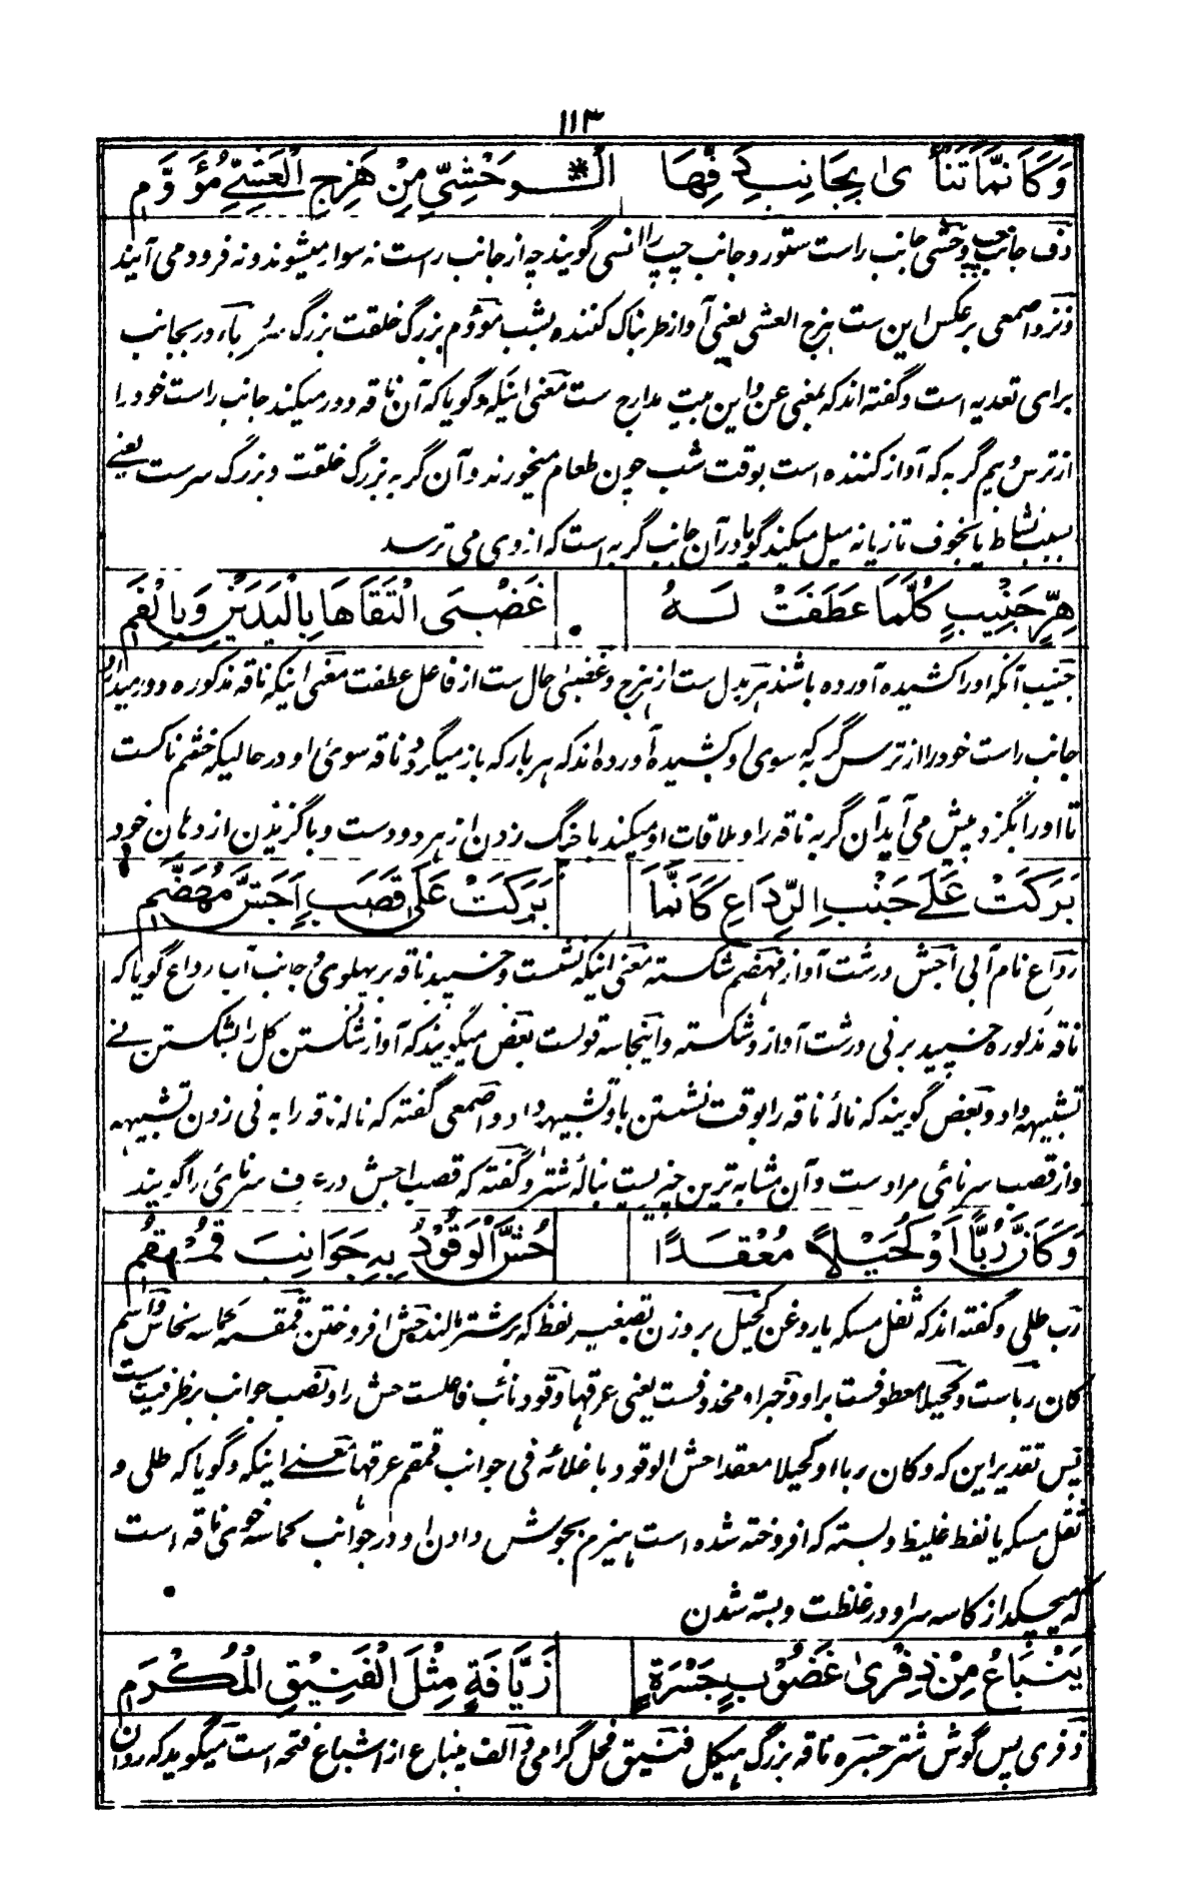 ۱۱۳
وَكَاَنَّمَا تَنْاٰى بِجَانِبِ دَفِّهَا الْوَحْشِيِّ مِنْ هَزِجِ الْعَشِيِّ مُؤَوَّمِ
دف جانب وحشی جانب راست ستور و جانب چپ را انسی گویند چه از جانب راست نه سوار میشوند و نه فرود می آیند
ونزد اصمعی برعکس این ست هزج العشی یعنی آواز طربناک کننده بشب مؤوم بزرگ خلقت بزرگ سر باء در بجانب
برای تعدیه است و گفته اند که بمعنی عن و این بیت مدارج ست معنی اینکه و گویا که آن ناقه دور میکند جانب راست خود را
از ترس و بیم گربه که آواز کننده است بوقت شب چون طعام میخورند و آن گربه بزرگ خلقت و بزرگ سرست یعنے
بسبب نشاط یا بخوف تازیانه میل میکند گویا در آن جانب گربه است که از وی می ترسد
هِرٍّ جَنِيْبٍ كُلَّمَا عَطَفَتْ لَهُ غَضْبٰى اتَّقَاهَا بِالْيَدَيْنِ وَبِالْفَمِ
جنیب آنکه او را کشیده آورده باشند هر بدل ست از هزج و غضبیٰ حال ست از فاعل عطفت معنی اینکه ناقه مذکوره دور میدارد
جانب راست خود را از ترس گربه که سوی او کشیده آورده اند که هر بار که باز میگردد ناقه سوئ او در حالیکه خشم ناکست
تا او را بگزد پیش می آید آن گربه ناقه را و ملاقات او میکند با خنگ زدن از هر دو دست و با گزیدن از دهان خود
بَرَكَتْ عَلٰے جَنْبِ الرِّدَاعِ كَاَنَّمَا بَرَكَتْ عَلٰى قَصَبٍ اَجَشَّ مُهَضَّمِ
رداع نام آبی اجش درشت آواز مهضم شکسته معنی اینکه نشست و خسپید ناقه بر پهلوی و جانب آب رداع گویا که
ناقه مذکوره خسپید بر نی درشت آواز و شکسته و اینجا سه قولست بعض میگویند که آواز شکستن گل را بشکستن نے
تشبیهه داد و بعض گویند که نالهٔ ناقه را بوقت نشستن باو تشبیهه داد و اصمعی گفته که ناله ناقه را به نی زدن تشبیهه
و از قصب سرنائی مرادست و آن مشابه ترین چیزیست بنالهٔ شتر و گفته که قصب اجش در عرف سرنائ را گویند
وَكَاَنَّ رُبًّا اَوْ كُحَيْلًا مُعْقَدًا حُشَّ الْوَقُوْدُ بِهِ جَوَانِبَ قُمْقُمِ
رب طلی و گفته اند که ثفل مسکه یا روغن کحیل بر وزن تصغیر نفط که بر شتر مالند حش افروختن قمقمه کاسه نحاس و اسم
کان رباست و کحیلا معطوفست براو و خبر او محذوفست یعنی عرقها و قود نائب فاعلست حش را و نصب جوانب بر ظرفیت ست
پس تقدیر این که و کان ربا او کحیلا معقدا حش الوقود باغلائه فی جوانب قمقم عرقها یعنے اینکه و گویا که طلی و
ثفل مسکه یا نفط غلیظ و بسته که افروخته شده است هیزم بجوش دادن او در جوانب کاسه خوی ناقه است
که میچکد از کاسه سر او در غلظت و بسته شدن
يَنْبَاعُ مِنْ ذِفْرٰى غَضُوْبٍ جَسْرَةٍ زَيَّافَةٍ مِثْلَ الْفَنِيْقِ الْمُكْرَمِ
ذفری پس گوش شتر جسره ناقه بزرگ هیکل فنیق فحل گرامی و الف ینباع از اشباع فتحه است میگوید که روان